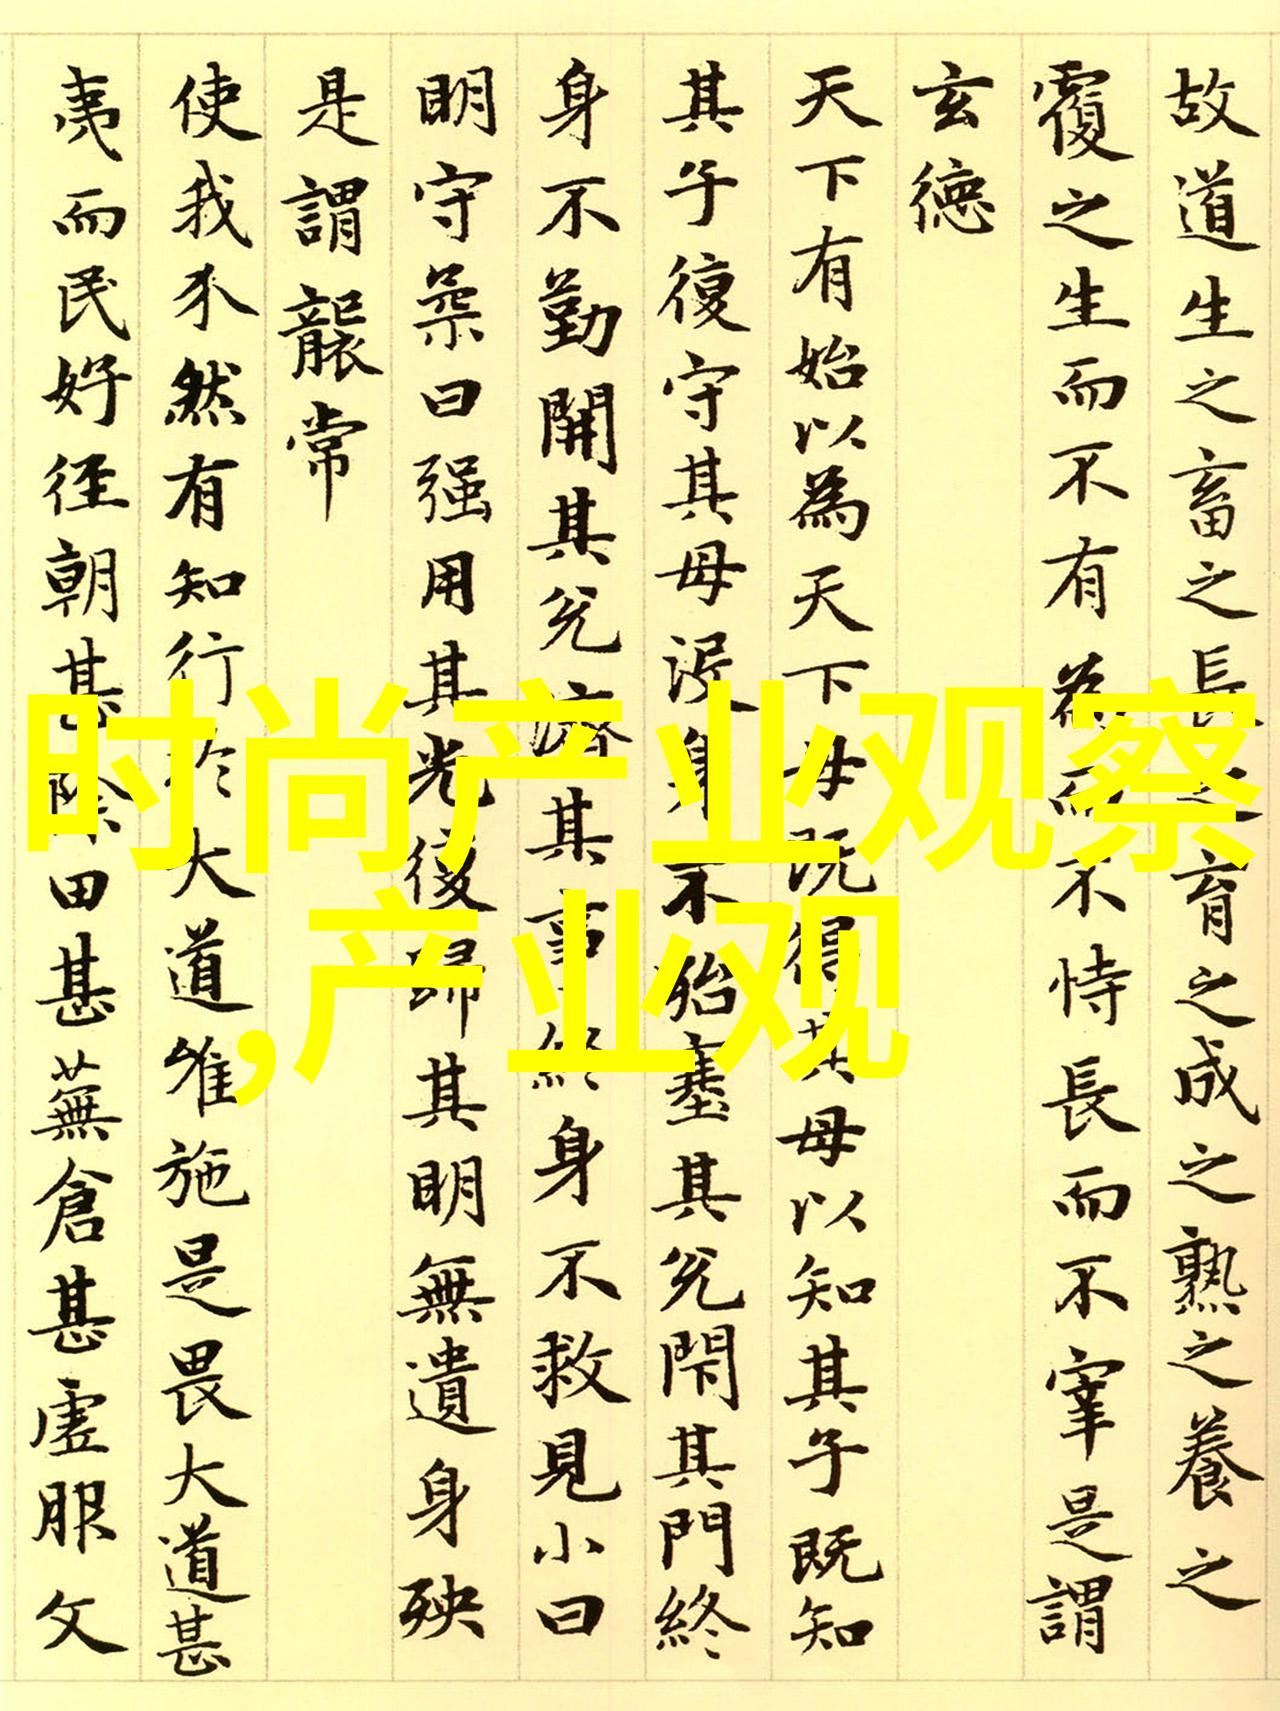 故道生之畜之長之育之成之熟之養之
覆之生而不有為而不恃長而不宰是謂
玄德
天下有始以為天下母既得其母以知其子既知
其子復守其母没身不殆塞其兊閇其門終
身不勤開其兊濟其事終身不救見小曰
明守柔曰强用其光復歸其明無遺身殃
是謂襲常
使我介然有知行於大道唯施是畏大道甚
夷而民好徑朝甚除田甚蕪倉甚虛服文
时尚产业观察
,产业观